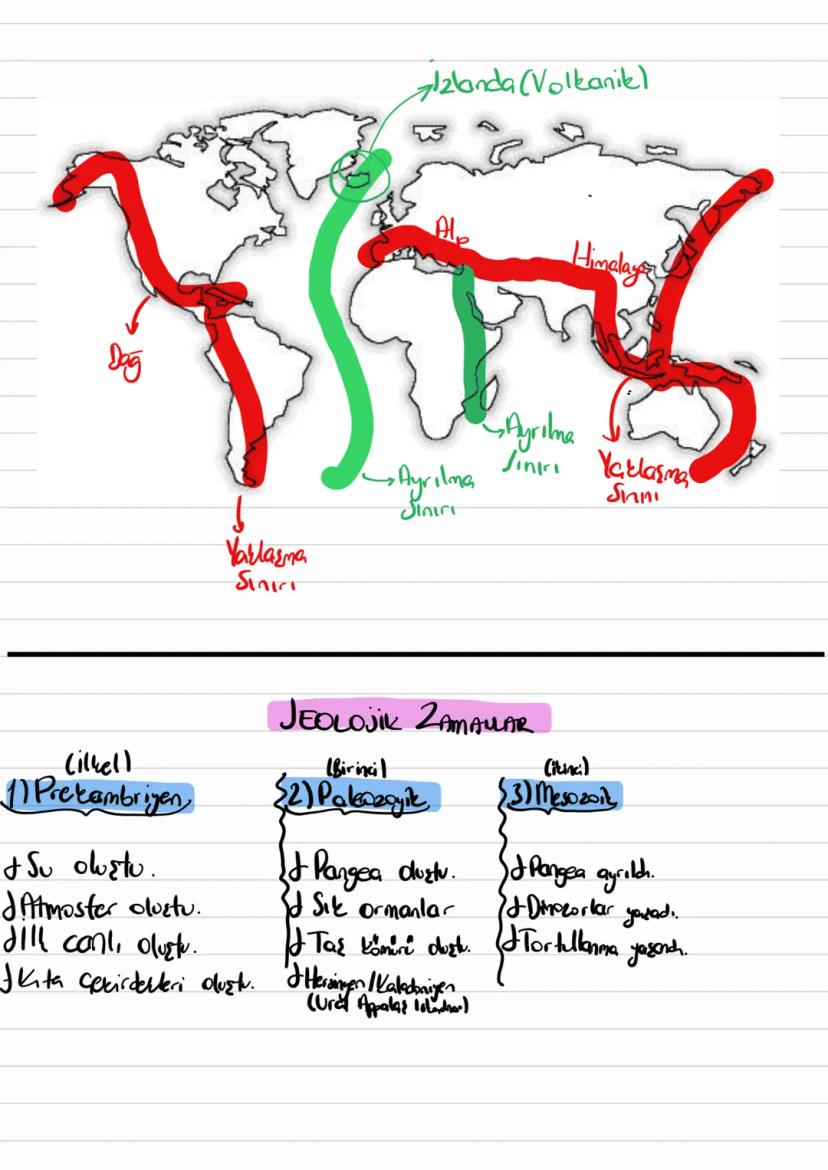 İzlanda (Volkanik)
Alp
Himalaya
Dağ
Ayrılma
Sınırı
Ayrılma
Sınırı
Yaklaşma
Sınırı
Yaklaşma
Sınırı
JEOLOJİK ZAMANLAR
(ilkel)
1) Prekambriyen
Su oluştu.
Atmosfer oluştu.
İlk canlı oluştu.
Kıta çekirdekleri oluştu.
(Birinci)
2) Paleozoyik
Pangea oluştu.
Sık ormanlar
Taş kömürü oluştu.
Hersinyen/Kaledoniyen
(Ural Appalaş
(ikinci)
3) Mesozoik
Pangea ayrıldı.
Dinozorlar yaşadı.
Tortullanma yaşandı.